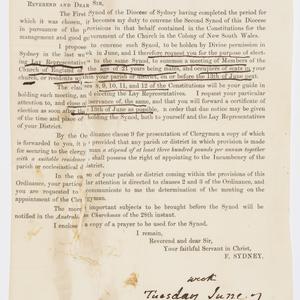 REVEREND AND DEAR SIR,
The First Synod of the Diocese of Sydney having completed the period for
which it becomes my duty to convene the Second Synod of this Diocese
in pursuance of the provisions in that behalf contained in the Constitutions for the
management and good government of the Church in the Colony of New South Wales.
I propose to convene such Synod, to be holden by Divine permission in
Sydney in the last week in June, and I therefore request you for the purpose of elect-
ing Lay Representatives to the same Synod, to summon a meeting of Members of the
Church of England of the age of 21 years being males, and occupiers of seats in your
church, or residents within your parish or district, on or before the 13th of June next.
8, 9, 10, 11, and 12 of the Constitutions will be your guide in
holding such meeting, and electing the Lay Representatives. I request your particular
attention to, and close observance of the same, and that you will forward a certificate of
election as soon after the 13th of June as possible, in order that due notice may be given
of the time and place of holding the Synod, both to yourself and the Lay Representatives
of your District.
By the Ordinance clause 9 for presentation of Clergymen a copy of which is for-
warded provides that any parish or district in which provision is made
for securing to the clergyman a stipend of at least three hundred pounds per annum together
with a suitable residence shall possess the right of appointing to the Incumbency of the
parish or ecclesiastical district.
In the case of your parish or district coming within the provisions of this
Ordinance, your attention is directed to clauses 2 and 3 of the Ordinance.
You are requested to communicate to me the determination of the meeting on the
appointment of the Clergyman.
The more important subjects to be brought before the Synod will be
notified in the Australian Churchman of the 28th instant.
I enclose a copy of a prayer to be used for the Synod.
I remain,
Reverend and dear Sir,
Your faithful Servant in Christ,
F. SYDNEY.
week
Tuesday June